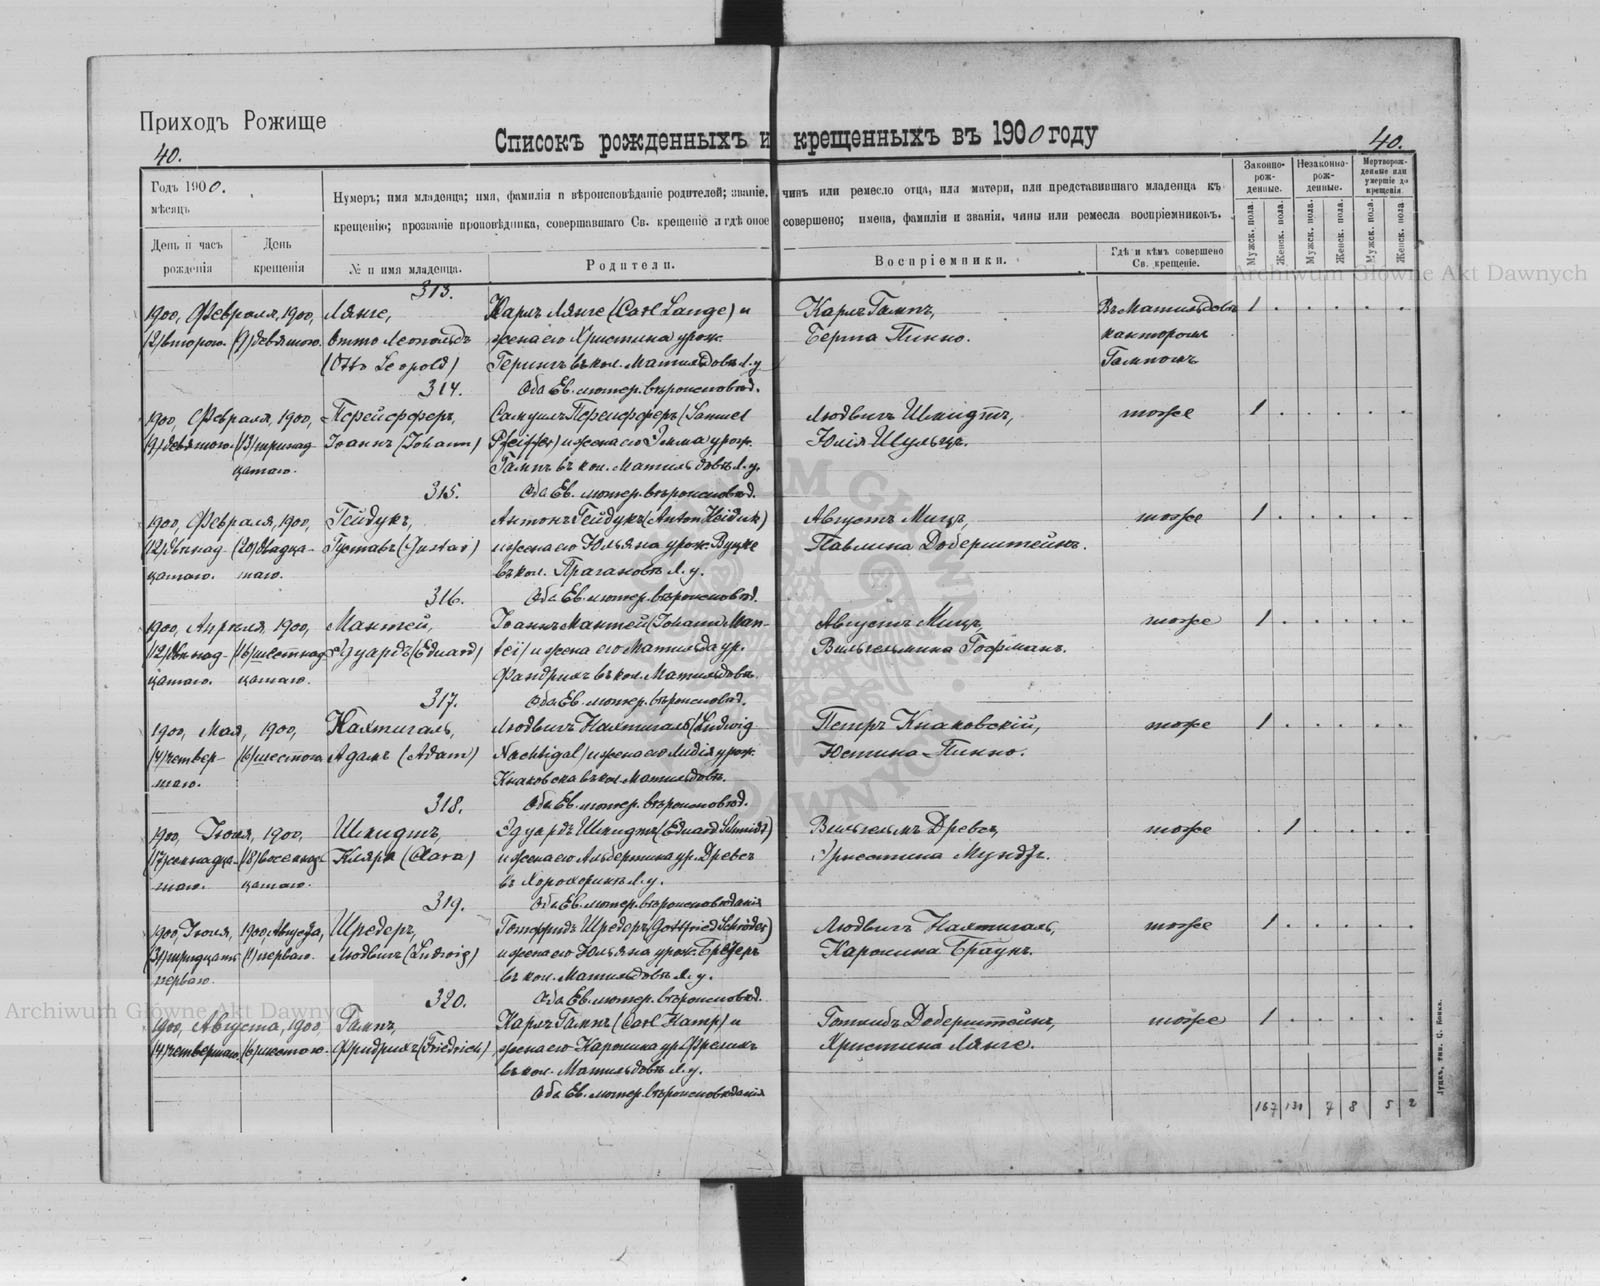 Приходъ Рожище
Списокъ рожденныхъ и крещенныхъ въ 1900 году
40.
40.
Годъ 1900.
мѣсяцъ
День и часъ рожденія
День крещенія
Нумеръ; имя младенца; имя, фамилія и вѣроисповѣданіе родителей; званіе, чинъ или ремесло отца, или матери, или представившаго младенца къ
крещенію; прозваніе проповѣдника, совершавшаго Св. крещеніе и гдѣ оное совершено; имена, фамиліи и званія, чины или ремесла воспріемниковъ.
№ и имя младенца.
Родители.
Воспріемники.
Гдѣ и кѣмъ совершено Св. крещеніе.
Законно-рож-денные.
Незаконно-рож-денные.
Мертворож-денные или умершіе до крещенія
Мужск. пола.
Женск. пола.
Мужск. пола.
Женск. пола.
Мужск. пола.
Женск. пола.
Archiwum Główne Akt Dawnych
313.
1900, Февраля, 1900, Лянге, Карлъ Лянге (Carl Lange) и Карлъ Гампъ, Въ Матильдовъ 1
(2) второго. (9) девятого. Отто Леопольдъ жена его Христина урож. Берта Пинно. канторомъ
(Otto Leopold) Герингъ въ кол. Матильдовъ Л. у. Гампомъ
314. Оба Ев. лютер. вѣроисповѣд.
1900, Февраля, 1900, Пфейфферъ, Самуилъ Пфейфферъ (Samuel Людвигъ Шмидтъ, тоже 1
(9) девятого. (13) тринад- Іоаннъ (Johann) Pfeiffer) и жена его Эмма урож. Юлія Шульцъ.
цатаго. Гампъ въ кол. Матильдовъ Л. у.
315. Оба Ев. лютер. вѣроисповѣд.
1900, Февраля, 1900, Гейдукъ, Антонъ Гейдукъ (Anton Heiduk) Августъ Мицъ, тоже 1
(12) двѣнад- (20) двадца- Густавъ (Gustav) и жена его Юльяна урож. Вуцке Павлина Доберштейнъ.
цатаго. таго. въ кол. Л. у.
316. Оба Ев. лютер. вѣроисповѣд.
1900, Апрѣля, 1900, Мантей, Іоаннъ Мантей (Johann Man- Августъ Мицъ, тоже 1
(12) двѣнад- (16) шестнад- Эдуардъ (Eduard) tei) и жена его Матильда ур. Вильгельмина Гофманъ.
цатаго. цатаго. Фандрихъ въ кол. Матильдовъ.
317. Оба Ев. лютер. вѣроисповѣд.
1900, Мая, 1900, Нахтигаль, Людвигъ Нахтигаль (Ludwig Петръ Кнаковскій, тоже 1
(4) четвер- (6) шестого Адамъ (Adam) Nachtigal) и жена его Лидія урож. Юстина Пинно.
таго. въ кол. Матильдовъ.
318. Оба Ев. лютер. вѣроисповѣд.
1900, Іюля, 1900, Шмидтъ, Эдуардъ Шмидтъ (Eduard Schmidt) Вильгельмъ Древсъ, тоже 1
(18) восемнад- Клара (Clara) и жена его Альбертина ур. Древсъ
таго. цатаго. въ Л. у.
319. Оба Ев. лютер. вѣроисповѣданія
1900, Іюля, 1900 Августа, Шредеръ, Готфридъ Шредеръ (Gottfried Schröder) Людвигъ Нахтигаль, тоже 1
(31) тридцать (1) перваго. Людвигъ (Ludwig) и жена его Юльяна урож. Каролина Браунъ.
перваго. въ кол. Матильдовъ Л. у.
320. Оба Ев. лютер. вѣроисповѣд.
1900, Августа, 1900 Гампъ, Карлъ Гампъ (Carl Hamp) и Готлибъ Доберштейнъ, тоже 1
(4) четвертаго. (6) шестого. Фридрихъ (Friedrich) жена его Каролина ур. Христина Лянге.
въ кол. Матильдовъ Л. у.
Оба Ев. лютер. вѣроисповѣданія
7 8 5 2
Луцкъ, тип. С. Бонка.
Archiwum Główne Akt Dawnych